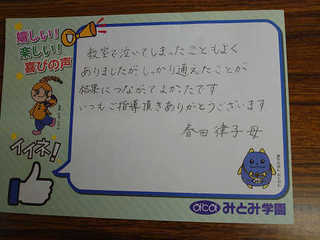 嬉しい!
楽しい!
喜びの声
教室で泣いてしまったこともよく
ありましたが、しっかり通えたことが
結果につながってよかったです
いつもご指導頂きありがとうございます
春田 律子 母
イイネ!
みとみ学園